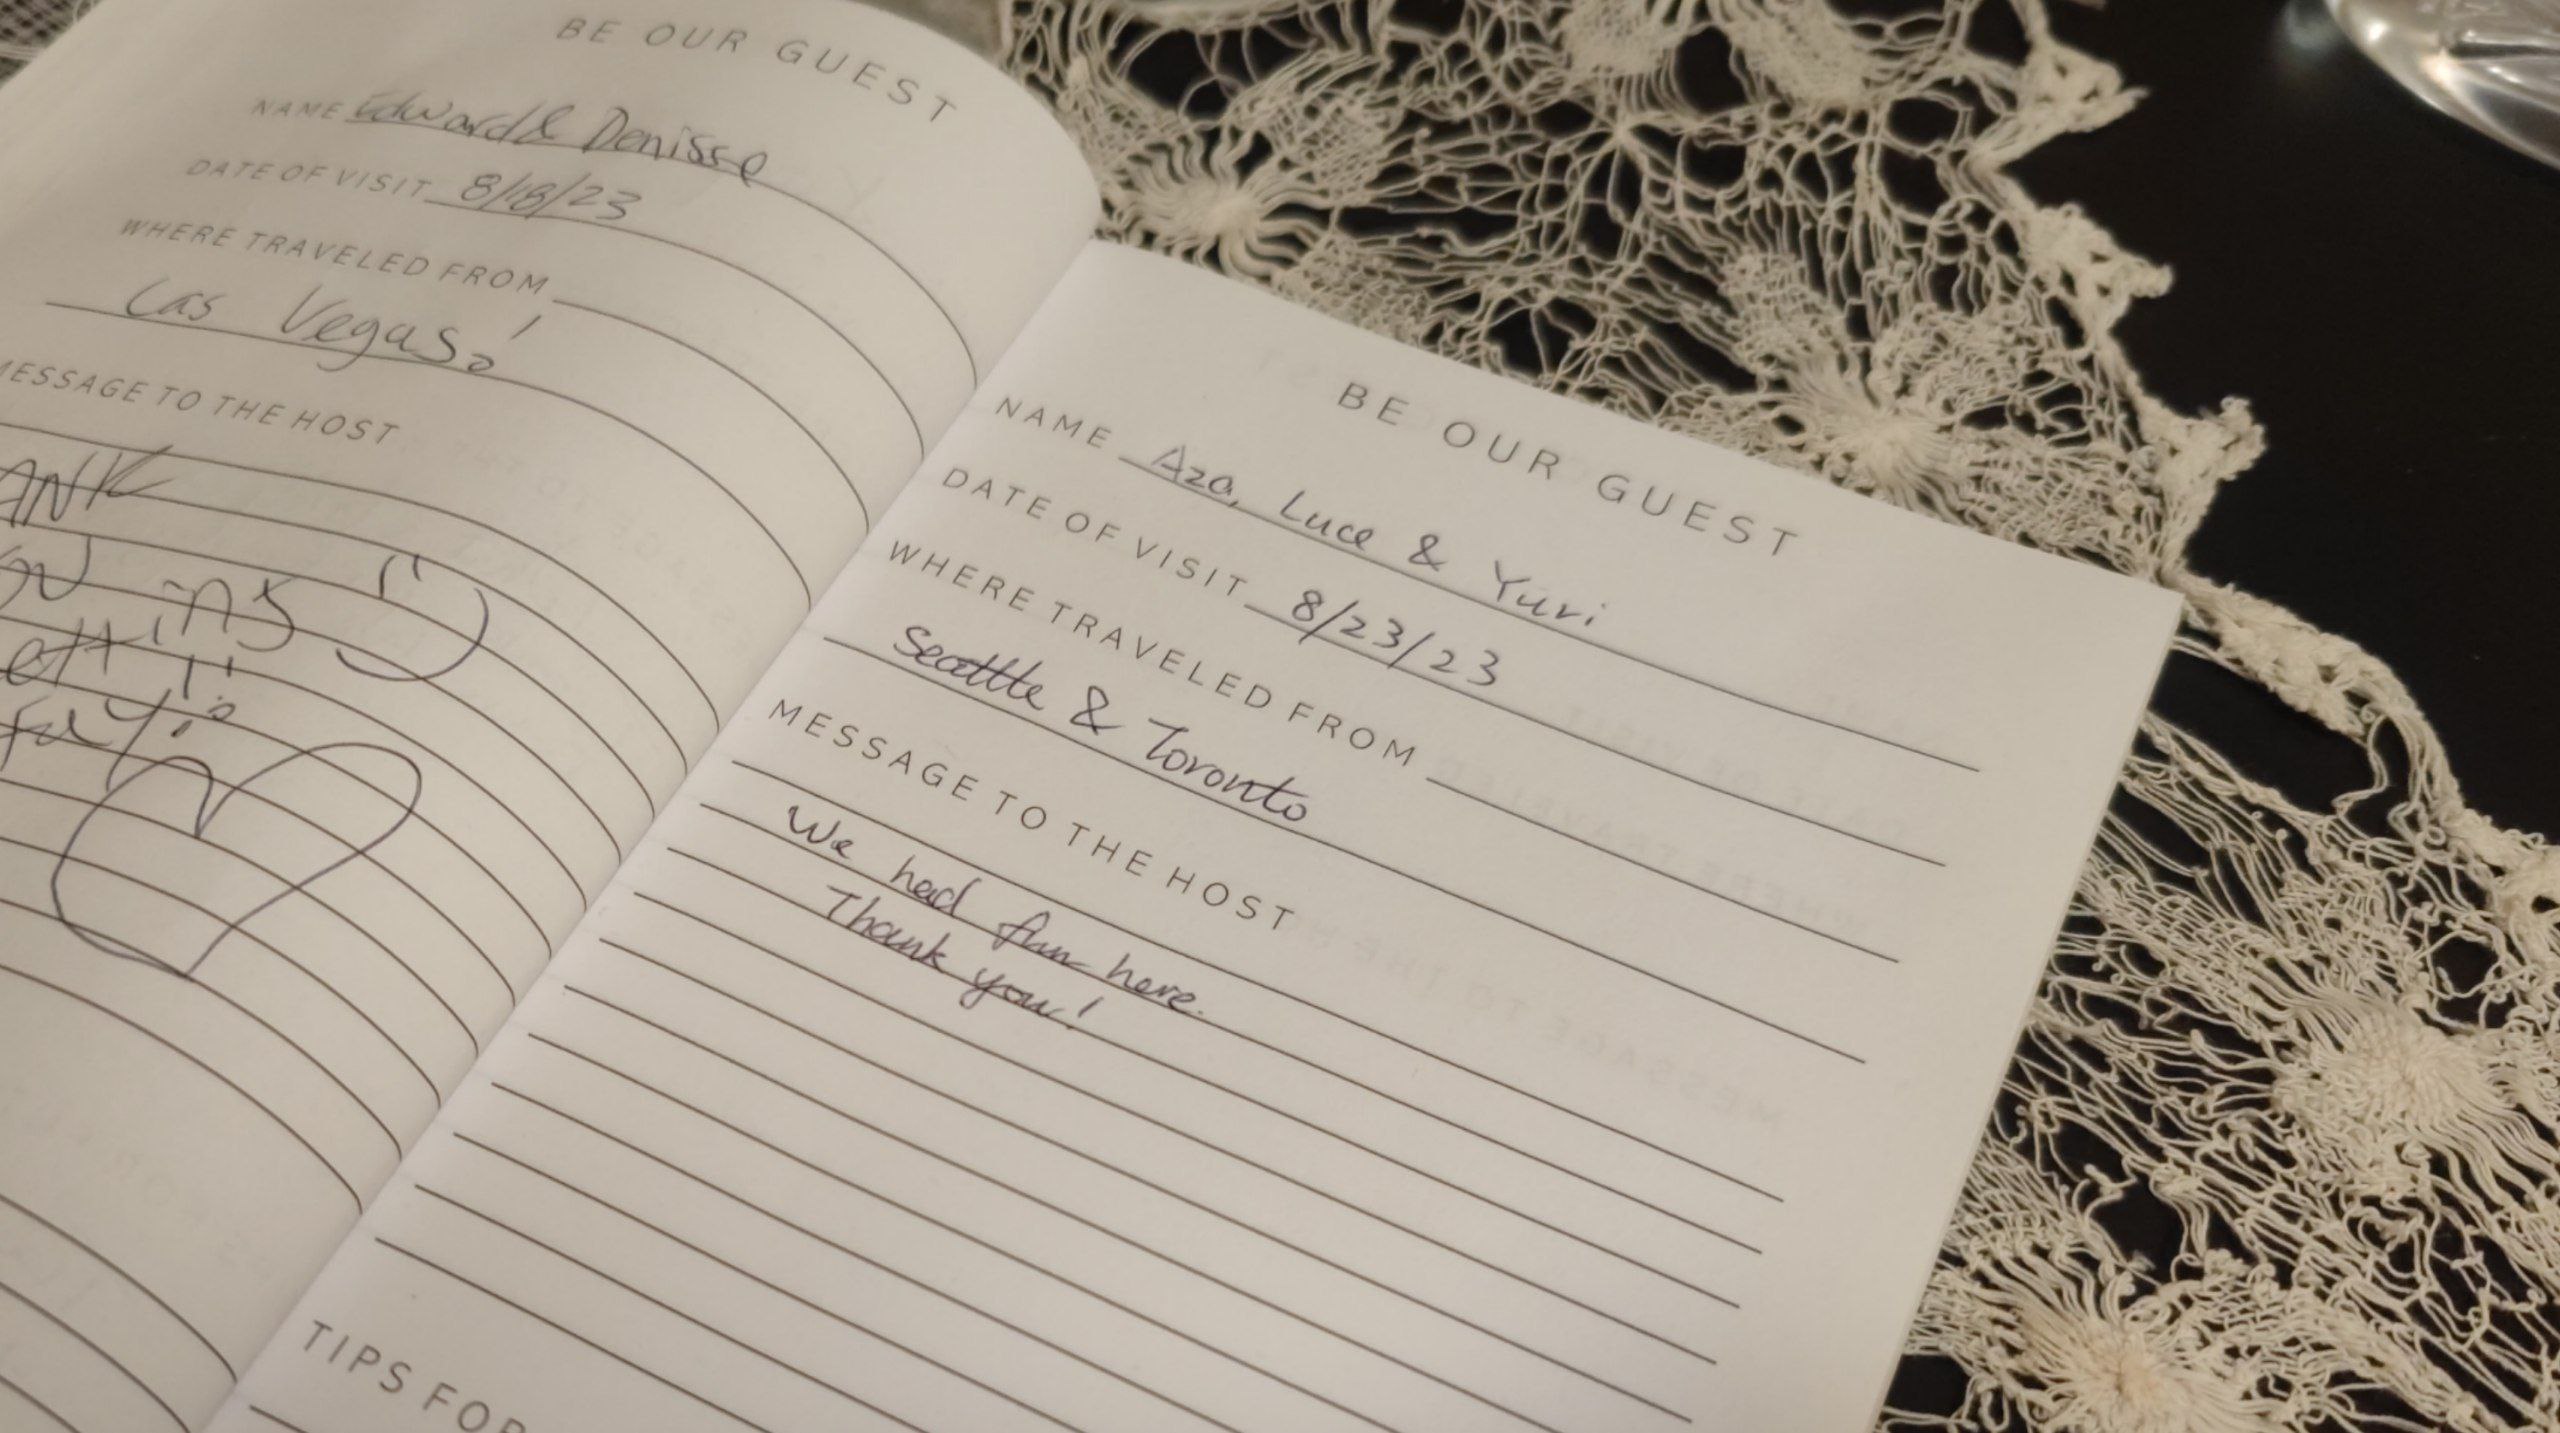 BE OUR GUEST
NAME Edward & Denisse
DATE OF VISIT 8/18/23
WHERE TRAVELED FROM
Las Vegas!
MESSAGE TO THE HOST
BE OUR GUEST
NAME Aza, Luce & Yuri
DATE OF VISIT 8/23/23
WHERE TRAVELED FROM
Seattle & Toronto
MESSAGE TO THE HOST
We had fun here.
Thank you!
TIPS FOR